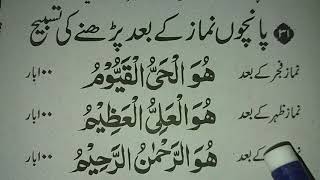 ۳۱ پانچوں نماز کے بعد پڑھنے کی تسبیح
نماز فجر کے بعد هُوَ الْحَیُّ الْقَیُّوْمُ ۱۰۰ بار
نماز ظہر کے بعد هُوَ الْعَلِیُّ الْعَظِیْمُ ۱۰۰ بار
کے بعد هُوَ الرَّحْمٰنُ الرَّحِیْمُ ۱۰۰ بار